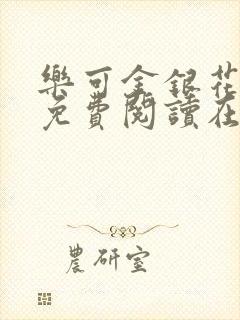 樂可金銀花
免費閱讀在
農研室